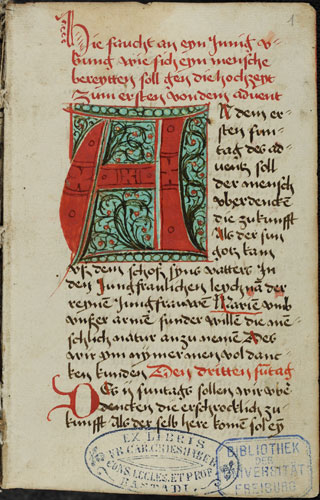 1
Hie facht an eyn Innig v̈-
bung wie sich eyn mensche
bereytten soll gen die hochzeyt
Zum ersten von dem aduent
An dem er-
sten sun-
tag des ad-
uentz soll
der mensch
vberdencken
die zukunfft
Als der sun
gotz kam
vß dem schoß syns vatters In
den Jungfraulichen leych der
reynen Jungfrauwen Marien vmb
vnßer armen sunder wille die me-
schlich natur an zu nemen Des
wir ym nymer me voldanc-
ken kunden Den dritten sutag
Des ij suntags sollen wir vbe-
dencken die erschrocklich zu-
kunfft Als der selb here komen sol ey
EX LIBRIS
FR. CAR. GRIESHABER
CONS. ECCLES. ET PROF.
RASTADI.
BIBLIOTHEK
DER
UNIVERSITÄT
FREIBURG